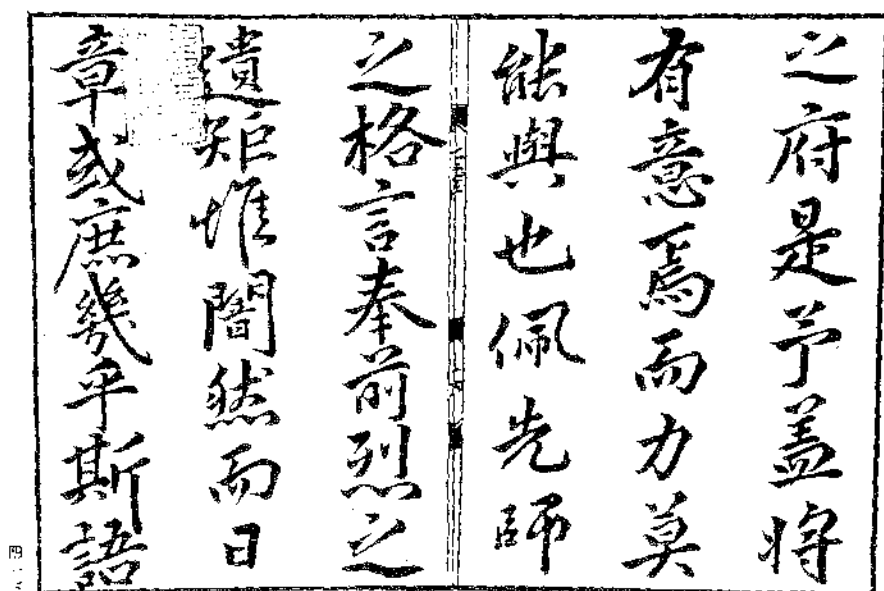 之府是予蓋將
有意焉而力莫
能與也佩先師
之格言奉前烈之
遺矩惟闇然而日
章或庶幾乎斯語